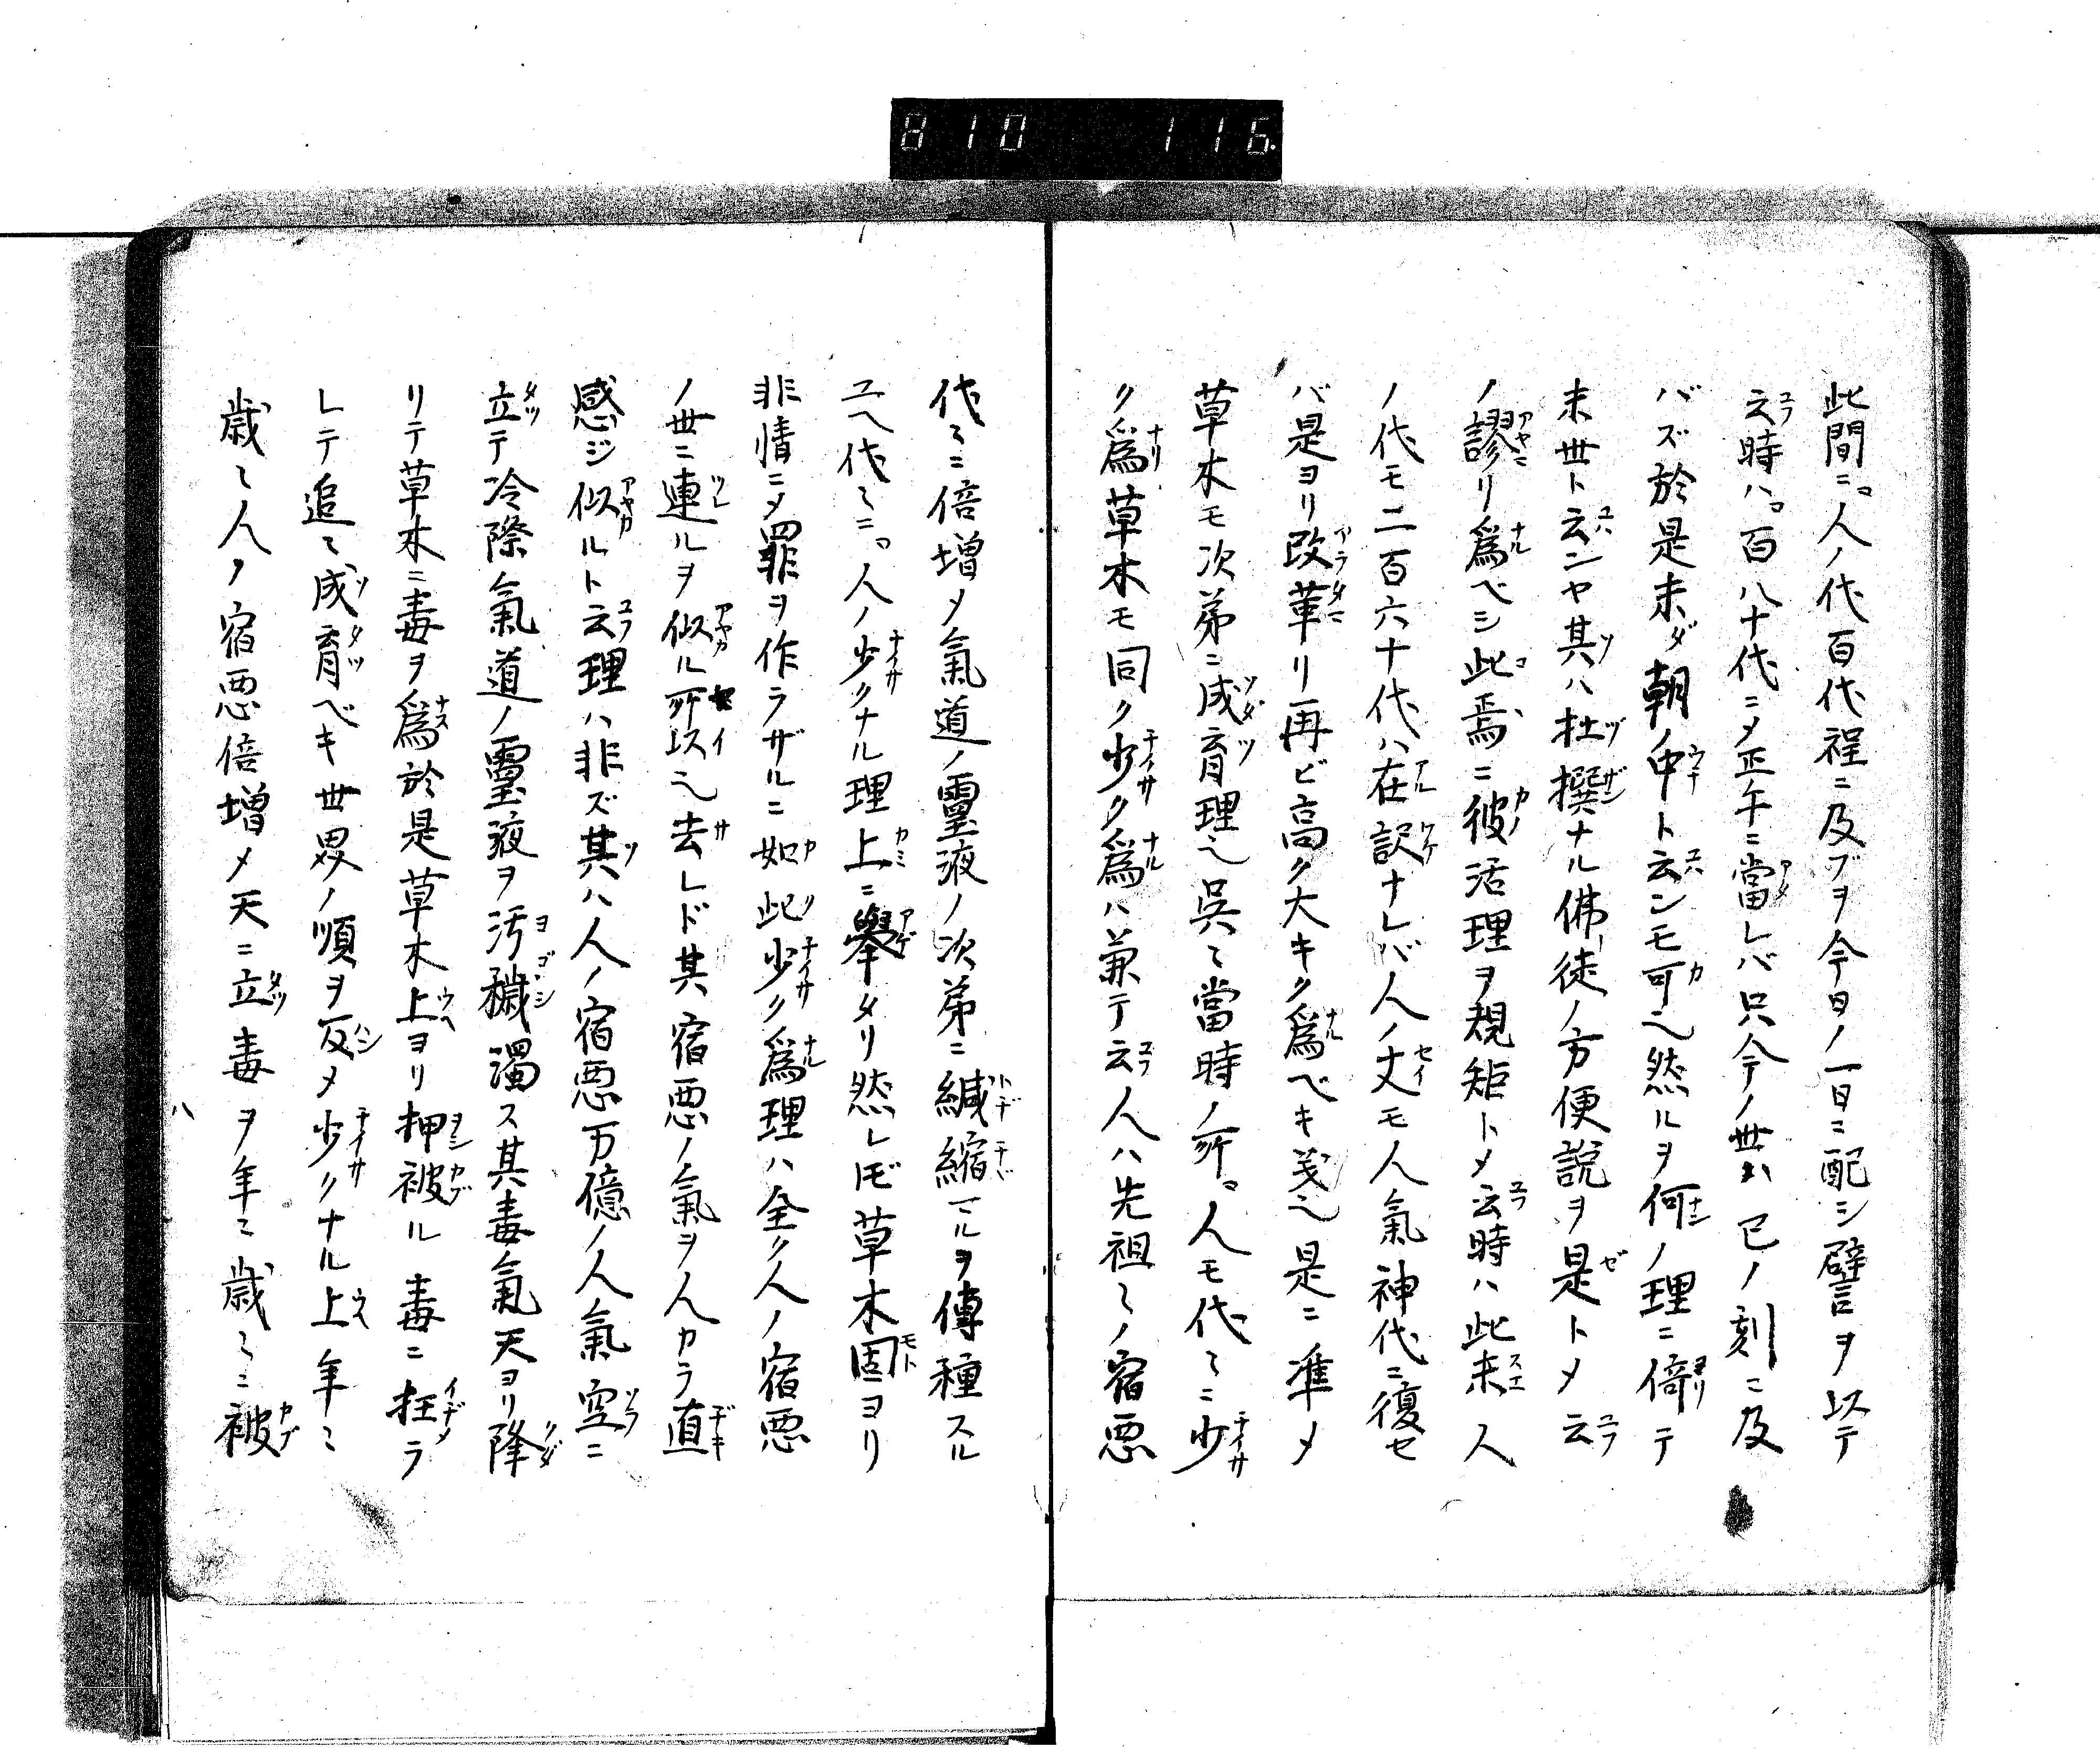 810 116.
此間ニ。人ノ代百代程ニ及ブヲ今日ノ一日ニ配シ譬ヲ以テ
云時ハ。百八十代ニメ正午ニ當レバ只今ノ世ハ巳ノ刻ニ及
バズ於是未ダ朝ノ中ト云ンモ可也然ルヲ何ノ理ニ倚テ
末世ト云ンヤ其ハ杜撰ナル佛徒ノ方便説ヲ是トメ云
ノ謬リ爲ベシ此焉ニ彼活理ヲ規矩トメ云時ハ此末人
ノ代モ二百六十代ハ在訳ナレバ人ノ丈モ人氣神代ニ復セ
バ是ヨリ改革リ再ビ高ク大キク爲ベキ義也是ニ準メ
草木モ次第ニ成育理也呉〻當時ノ所。人モ代〻ニ少
ク爲草木モ同ク少ク爲ハ兼テ云人ハ先祖〻ノ宿悪
代〻ニ倍増メ氣道ノ靈液ノ次第ニ緘縮マルヲ傳種スル
ユヘ代〻ニ。人ノ少クナル理上ニ擧タリ然レ𪜈草木固ヨリ
非情ニメ罪ヲ作ラザルニ如此少ク爲理ハ全ク人ノ宿悪
ノ世ニ連ルヲ似ル所以也去レド其宿悪ノ氣ヲ人カラ直
感ジ似ルト云理ハ非ズ其ハ人ノ宿悪万億ノ人氣空ニ
立テ冷際氣道ノ靈液ヲ汚穢濁ス其毒氣天ヨリ降
リテ草木ニ毒ヲ爲於是草木上ヨリ押被ル毒ニ枉ラ
レテ追〻成育ベキ世界ノ順ヲ反メ少クナル上年〻
歳〻人ノ宿悪倍増メ天ニ立毒ヲ年〻歳〻ニ被
八